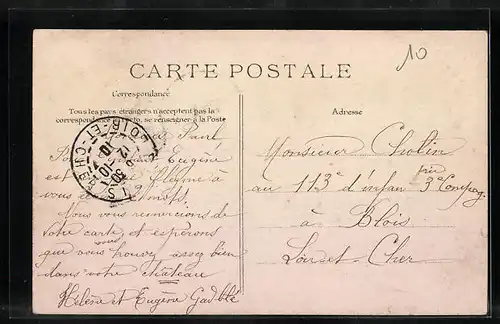 10
CARTE POSTALE
Correspondance
Tous les pays étrangers n'acceptent pas la
correspondance au recto, se renseigner à la Poste
Adresse
LOIR-ET-CHER
Eugène
est à
vous
Nous vous remercions de
votre carte, et espérons
que vous vous trouvez assez bien
dans votre château
Hélène et Eugène
Monsieur Cholin
au 113e d'infan frie 3e Compag.
à Blois
Loir-et-Cher